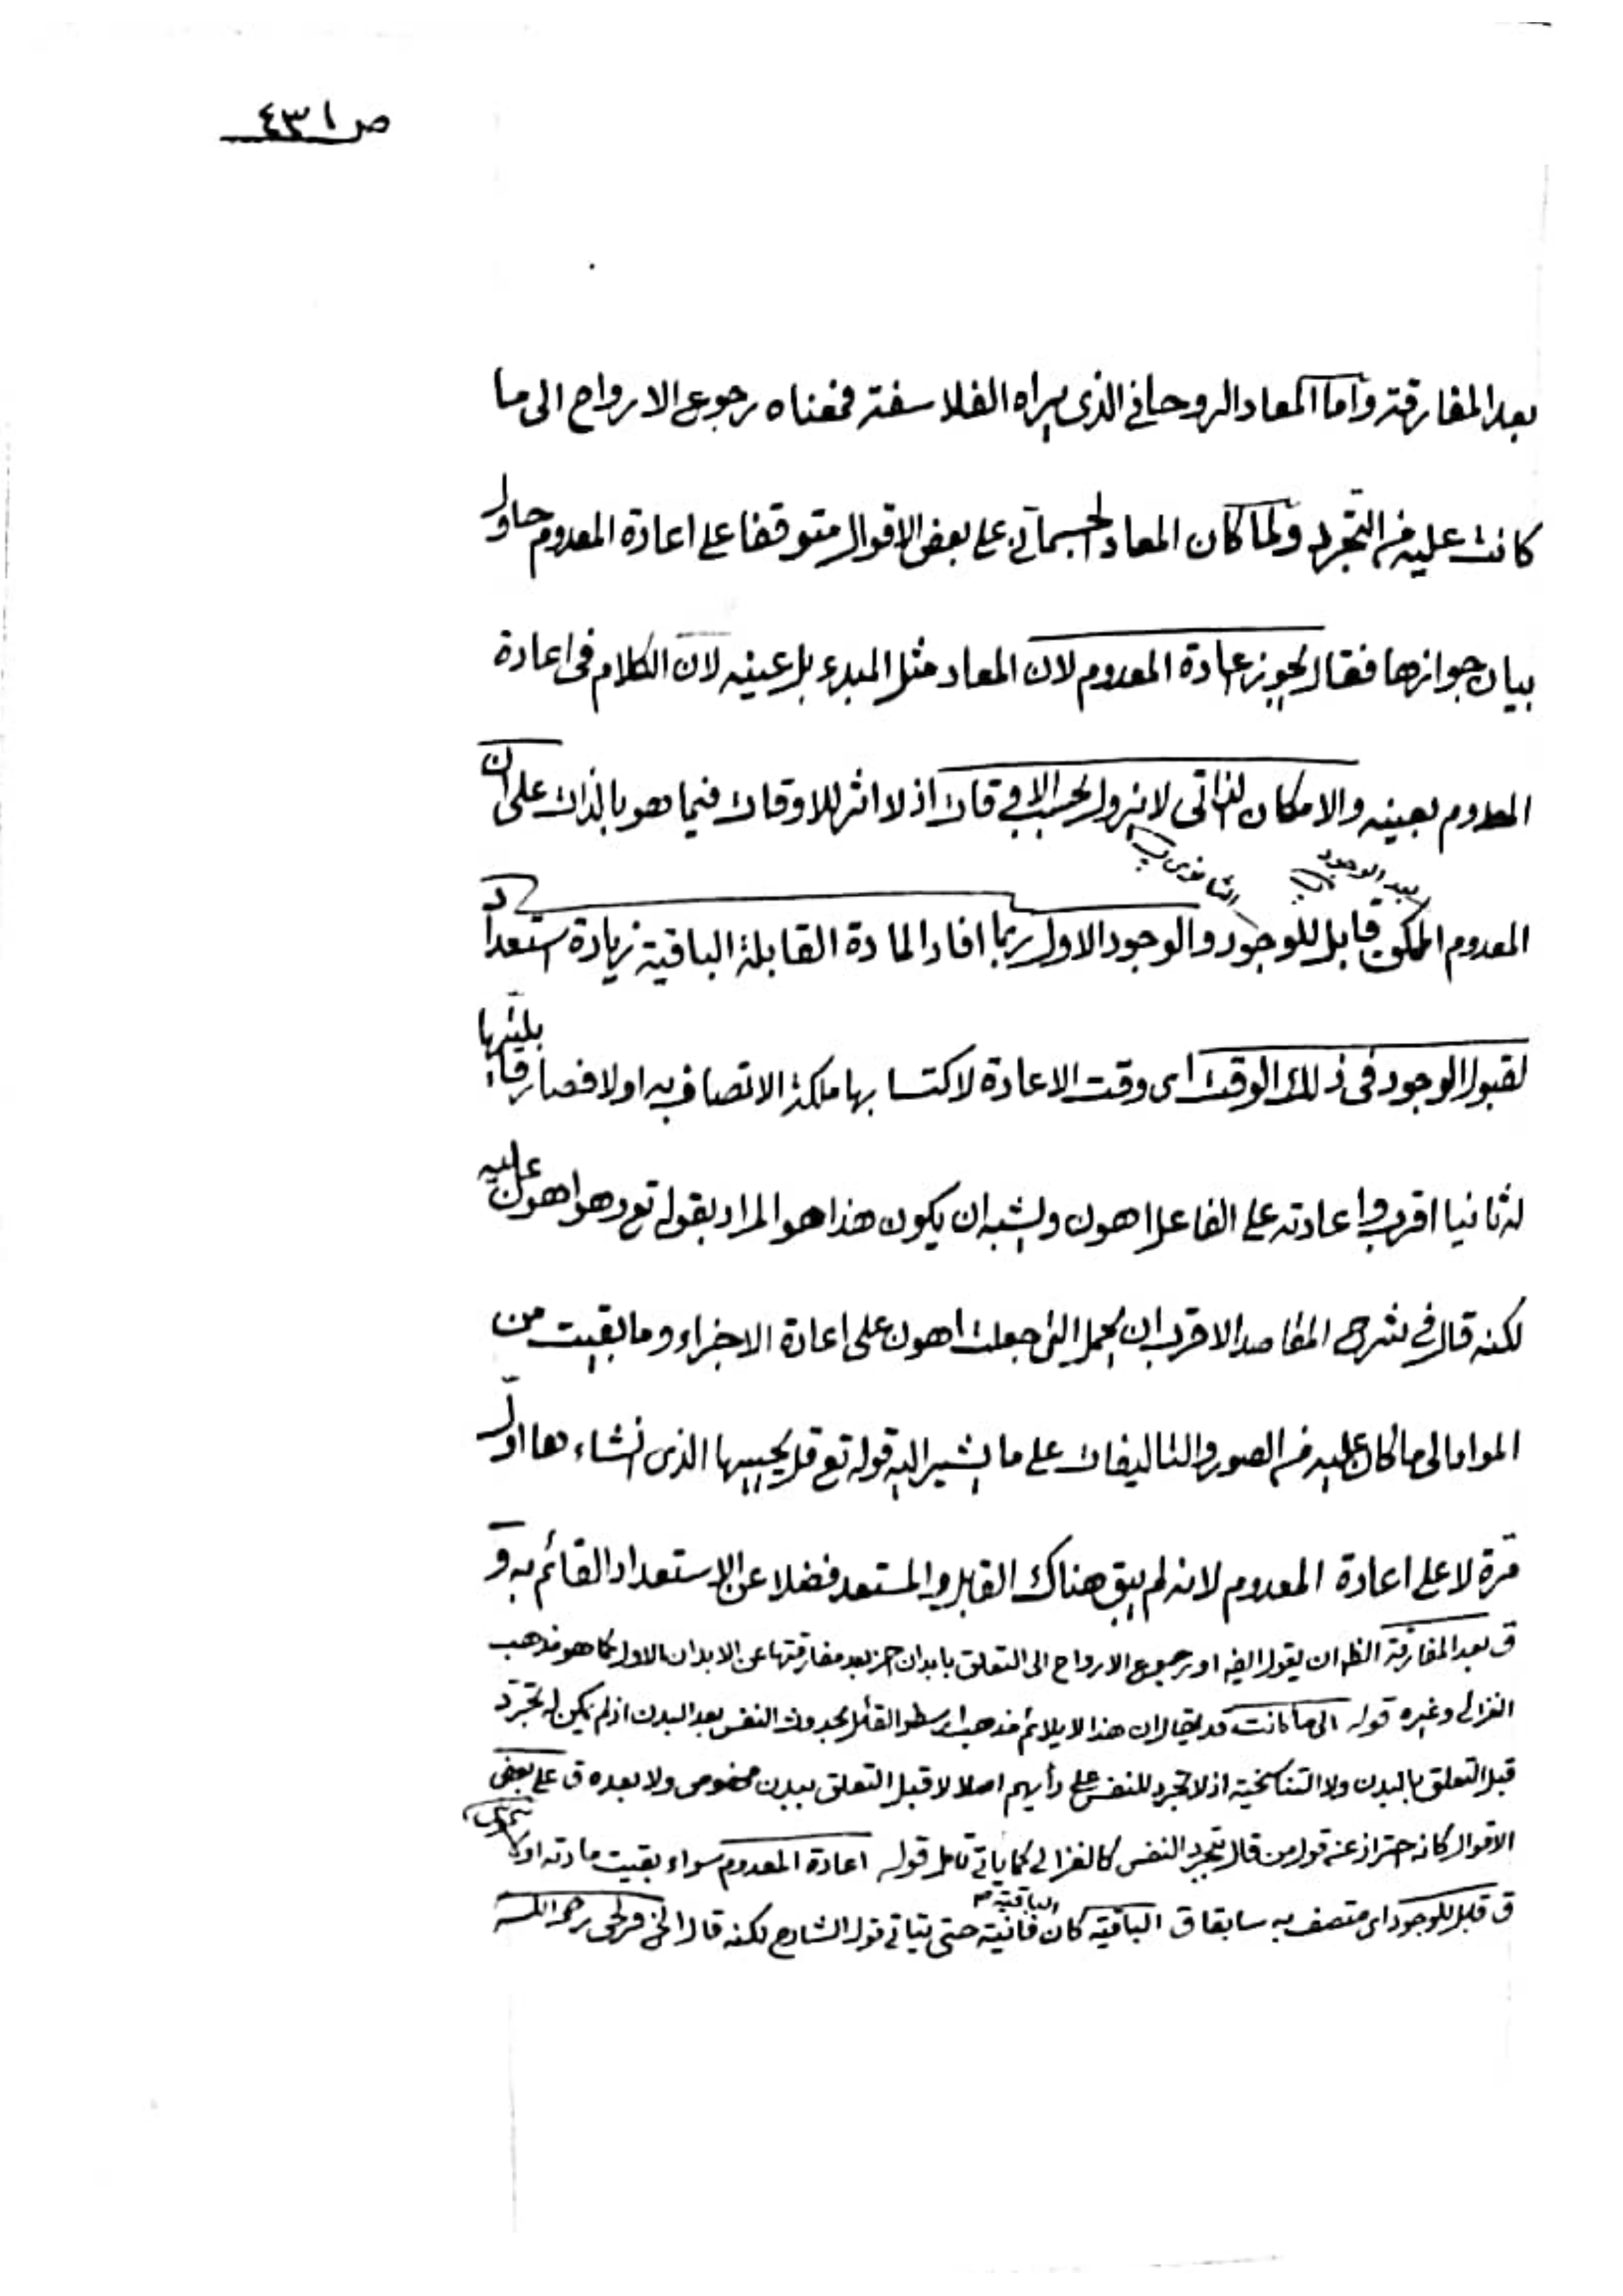 ص ٤٣١
بعد المفارقة وأما المعاد الروحاني الذي يراه الفلاسفة فمعناه رجوع الارواح الى ما
كانت عليه من التجرد ولما كان المعاد الجسماني على بعض الاقوال متوقفا على اعادة المعدوم حاول
بيان جوازها فقال يجوز اعادة المعدوم لان المعاد مثل المبدء بل عينه لان الكلام في اعادة
المعدوم بعينه والامكان الذاتي لا يزول بحسب الاوقات اذ لا اثر للاوقات فيما هو بالذات على ان
بعد الوجود
الثانوي
المعدوم الممكن قابل للوجود والوجود الاول ربما افاد المادة القابلة الباقية زيادة استعداد
لقبول الوجود في ذلك الوقت اى وقت الاعادة لاكتسابها ملكة الاتصاف به اولا فصار قابليتها
له ثانيا اقرب واعادته على الفاعل اهون ويشبه ان يكون هذا هو المراد بقوله تع وهو اهون عليه
لكنه قال في شرح المقاصد الاقرب ان يحمل التى جعلت اهون على اعادة الاجزاء وما بقيت من
المواد الى ما كان عليه من الصور والتاليفات على ما يشير اليه قوله تع قل يحييها الذى انشاءها اول
مرة لا على اعادة المعدوم لانه لم يبق هناك القابل والمستعد فضلا عن الاستعداد القائم به و
ق بعد المفارقة الظ ان يقول ايضا او رجوع الارواح الى التعلق بابدان اخر بعد مفارقتها عن الابدان الاول كما هو مذهب
الغزالى وغيره قوله الى ما كانت قد يقال ان هذا لا يلائم مذهب ارسطو القائل بحدوث النفس بعد البدن اذ لم يكن له تجرد
قبل التعلق بالبدن ولا التناسخية اذ لا تجرد للنفس على رأيهم اصلا لا قبل التعلق ببدن مخصوص ولا بعده ق على بعض
الاقوال كانه احتراز عنه قول من قال بتجرد النفس كالغزالى كما ياتي تامل قوله اعادة المعدوم سواء بقيت مادته اولا
ق قابل للوجود اى متصف به سابقا ق الباقية كان فانية حتى يتاتى قول الشارح لكنه قال الخ رحمه الله
الباقية